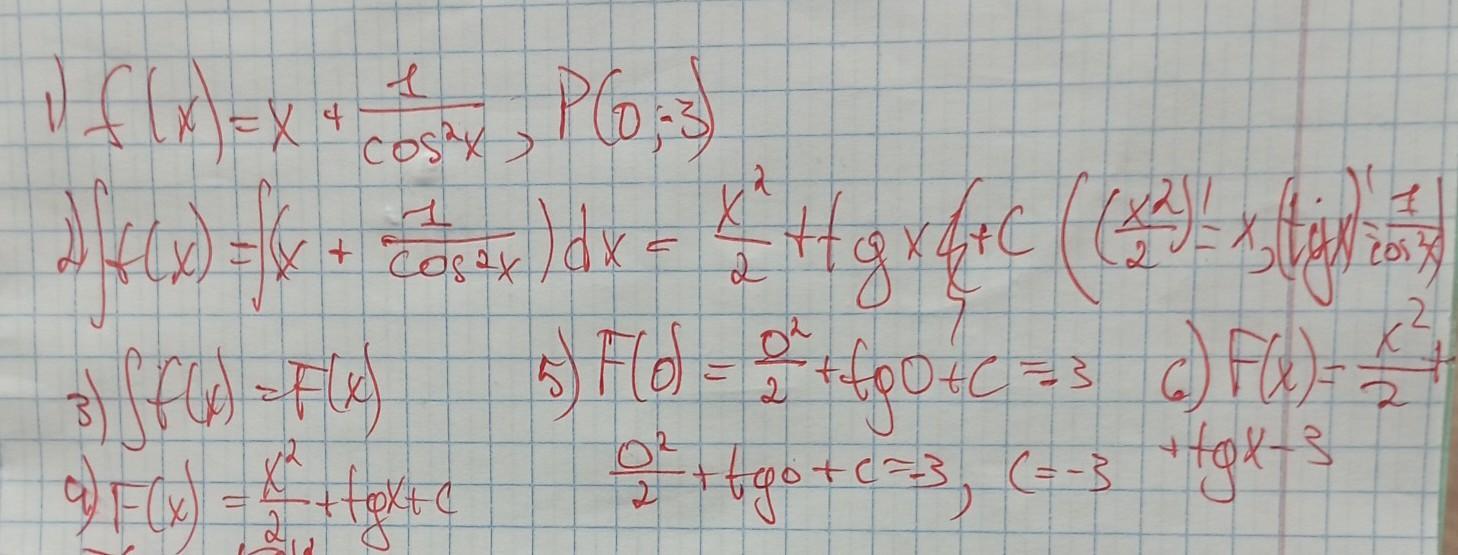 1) f(x) = x + 1/cos²x, P(0;-3)
2) ∫f(x) = ∫(x + 1/cos²x)dx = x²/2 + tg x + C ((x²/2)' = x, (tgx)' = 1/cos²x)
3) ∫f(x) = F(x)
4) F(x) = x²/2 + tgx + c
5) F(0) = 0²/2 + tg0 + c = -3
0²/2 + tg0 + c = -3, C = -3
6) F(x) = x²/2 +
+ tgx - 3